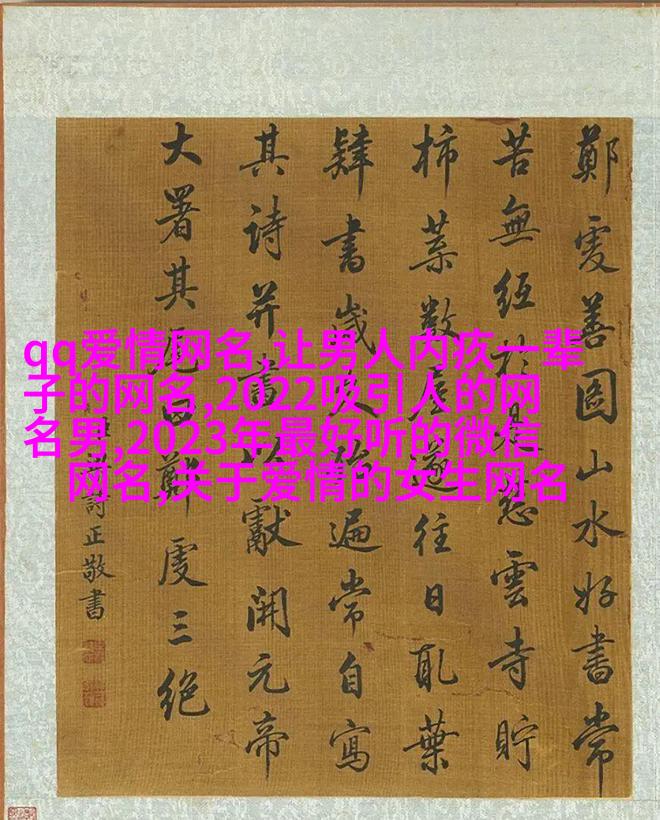 qq爱情网名,让男人内疚一辈
子的网名,2022吸引人的网
名男,2023年最好听的微信
网名,关于爱情的女生网名
鄭虔善圖山水好書常
苦無紙於是慈雲寺貯
柿葉數屋遂往日取葉
肄書歲久殆遍常自寫
其詩并以獻開元帝
大署其尾曰鄭虔三絕
詩正敬書